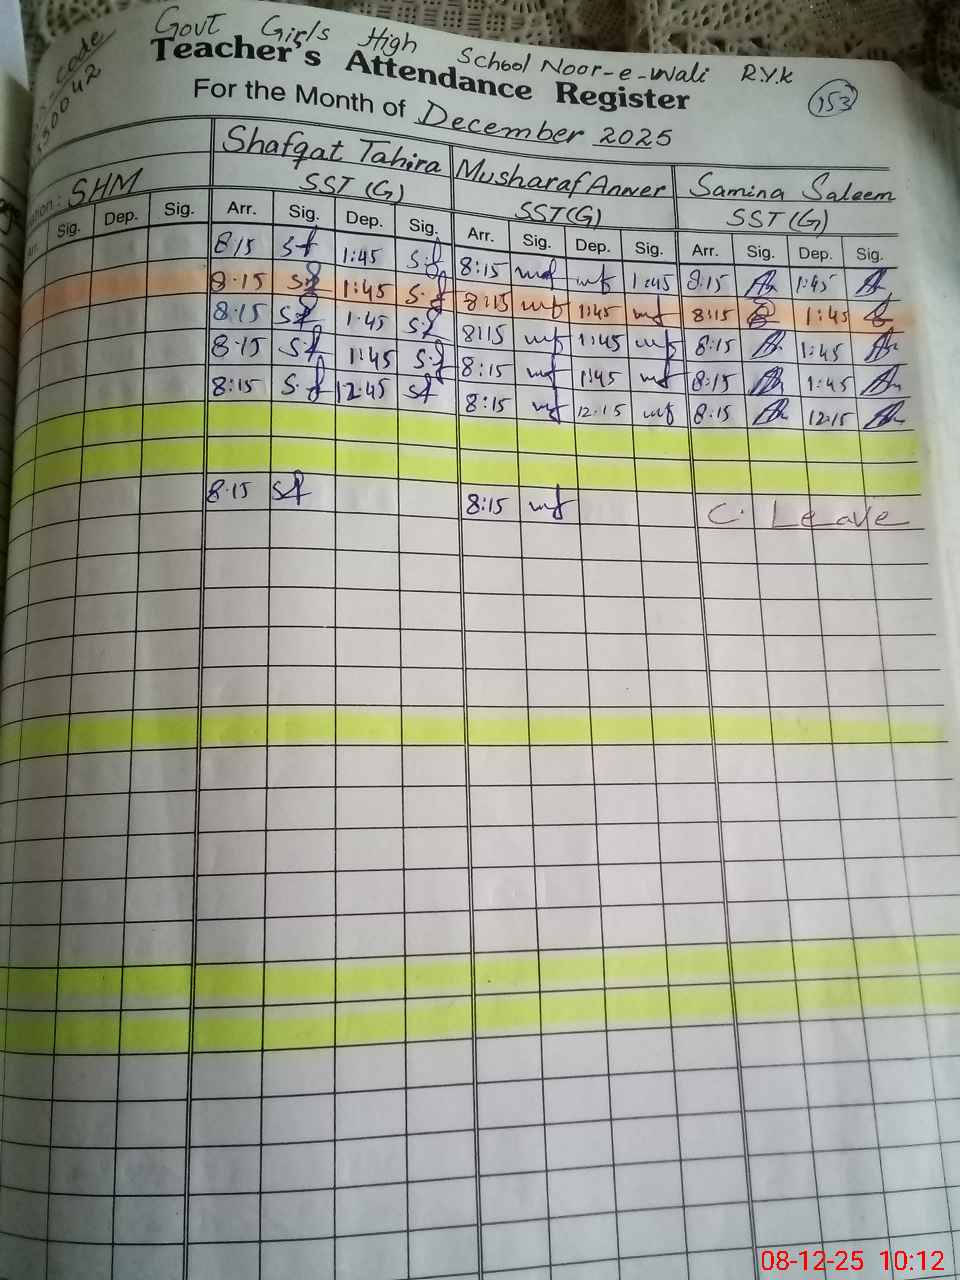 Govt Girls High School Noor-e-wali R.Y.K
Code
Teacher's Attendance Register
153
For the Month of December 2025
Shafqat Tahira Musharaf Anwer Samina Saleem
SHM SST (G) SST(G) SST (G)
Sig. Dep. Sig. Arr. Sig. Dep. Sig. Arr. Sig. Dep. Sig. Arr. Sig. Dep. Sig.
8/15 sf 1:45 s.f 8:15 mf mf 1:45 8:15 1:45
8.15 sf 1:45 s.f 8:15 mf 1:45 mf 8:15 1:45
8.15 sf 1.45 sf 8:15 mf 1:45 mf 8:15 1:45
8.15 sf 1:45 s.f 8:15 mf 1:45 mf 8:15 1:45
8:15 s.f 12:45 sf 8:15 mf 12:15 mf 8:15 12:15
8.15 sf 8:15 mf C. Leave
08-12-25 10:12